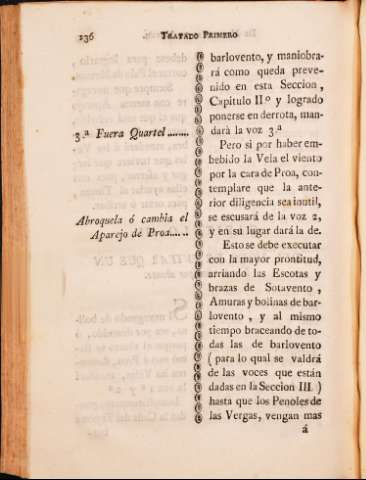 136 TRATADO PRIMERO
barlovento, y maniobra-
rá como queda preve-
nido en esta Seccion,
Capitulo IIº y logrado
ponerse en derrota, man-
3.ª Fuera Quartel ....... dará la voz 3.ª
Pero si por haber em-
bebido la Vela el viento
por la cara de Proa, con-
templare que la ante-
rior diligencia sea inutil,
Abroquela ó cambia el se escusará de la voz 2,
Aparejo de Proa..... y en su lugar dará la de.
Esto se debe executar
con la mayor prontitud,
arriando las Escotas y
brazas de Sotavento,
Amuras y bolinas de bar-
lovento, y al mismo
tiempo braceando de to-
das las de barlovento
(para lo qual se valdrá
de las voces que están
dadas en la Seccion III.)
hasta que los Penoles de
las Vergas, vengan mas
á